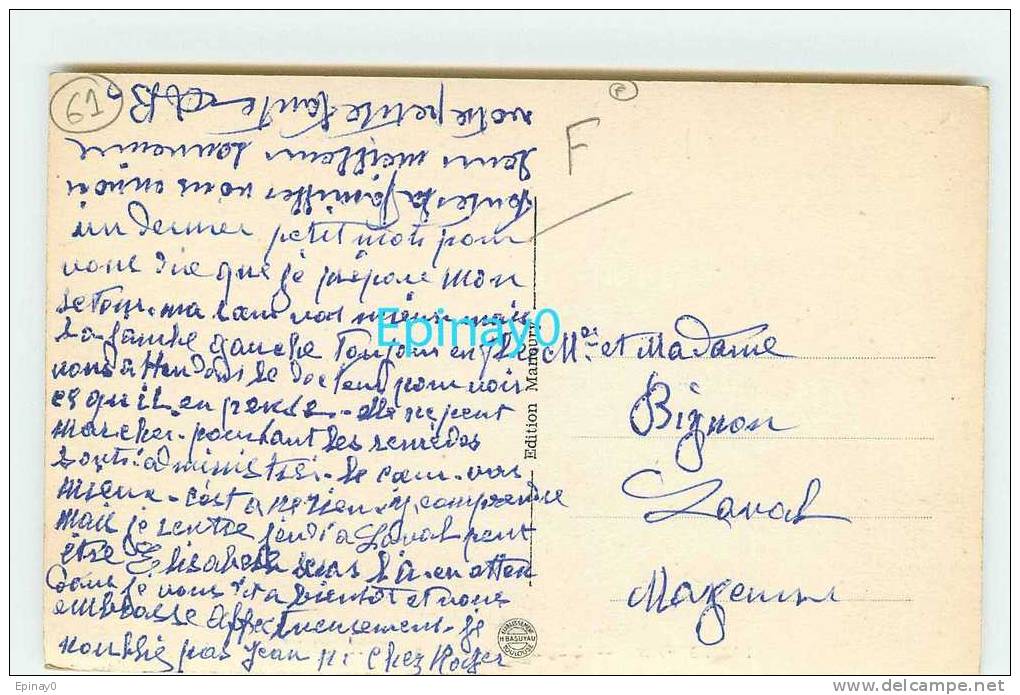 61
F
un dernier petit mot pour
vous dire que je prépare mon
retour. ma sœur va mieux mais
la jambe gauche toujours enflée
nous attendons le docteur pour voir
ce qu'il en pense - elle ne peut
marcher. pourtant les remèdes
sont administrés. le cœur vas
mieux - c'est a ne rien y comprendre
mais je rentre jeudi a Laval peut
être Elisabeth sera là. en atten
dans je vous dit a bientôt et vous
embrasse affectueusement. je
noublie pas Jean ni chez Roger
toutes la familles vous envoi
leurs meilleurs souvenirs
votre petite tante
Epinay0
Edition Marfoury
Mr et Madame
Bignon
Laval
Mayenne
ETABLISSEMENT
H BASUYAU
TOULOUSE
Epinay0
www.delcampe.net